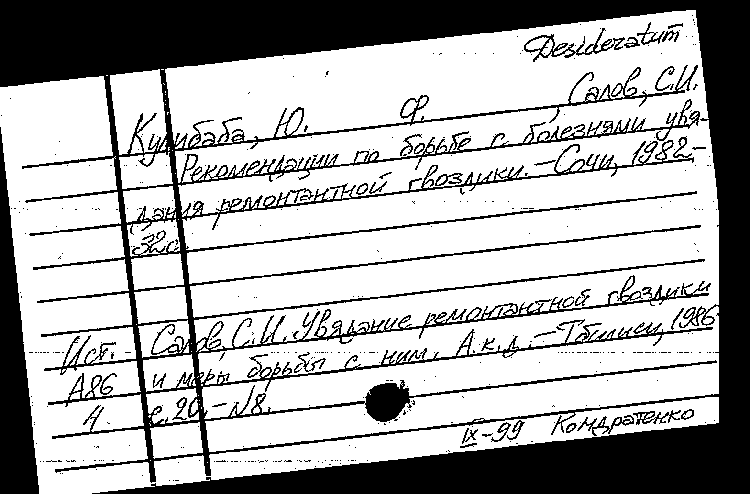 Desideratum
Кулибаба, Ю. Ф. , Салов, С.И.
Рекомендации по борьбе с болезнями увя-
дания ремонтантной гвоздики. – Сочи, 1982. –
32с.
Ист. Салов, С.И. Увядание ремонтантной гвоздики
А86 и меры борьбы с ним. А.к.д. – Тбилиси, 1986
4 с.20. – №8.
IX-99 Кондратенко